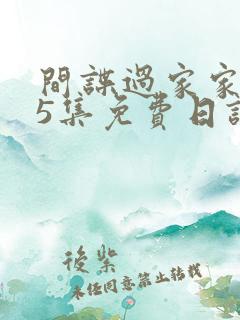 間諜過家家
5集免費日語
後紫
未经同意禁止转载